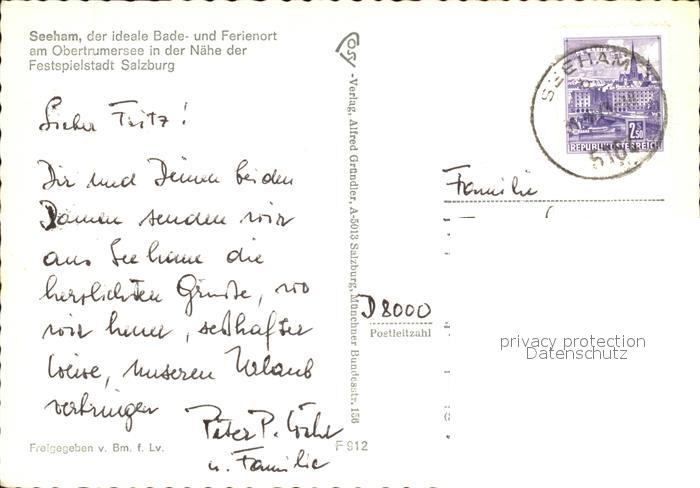 Seeham, der ideale Bade- und Ferienort
am Obertrumersee in der Nähe der
Festspielstadt Salzburg
Lieber Fritz!
Dir und Deinen beiden
Damen senden wir
aus Seeham die
herzlichsten Grüsse, wo
wir heuer, seßhafter
Weise, unseren Urlaub
verbringen
Peter P.
u. Familie
Freigegeben v. Bm. f. Lv.
F 912
-Verlag, Alfred Gründler, A-5013 Salzburg, Münchner Bundesstr. 156
SEEHAM
2.50
REPUBLIK ÖSTERREICH
Familie
D 8000
Postleitzahl
privacy protection
Datenschutz